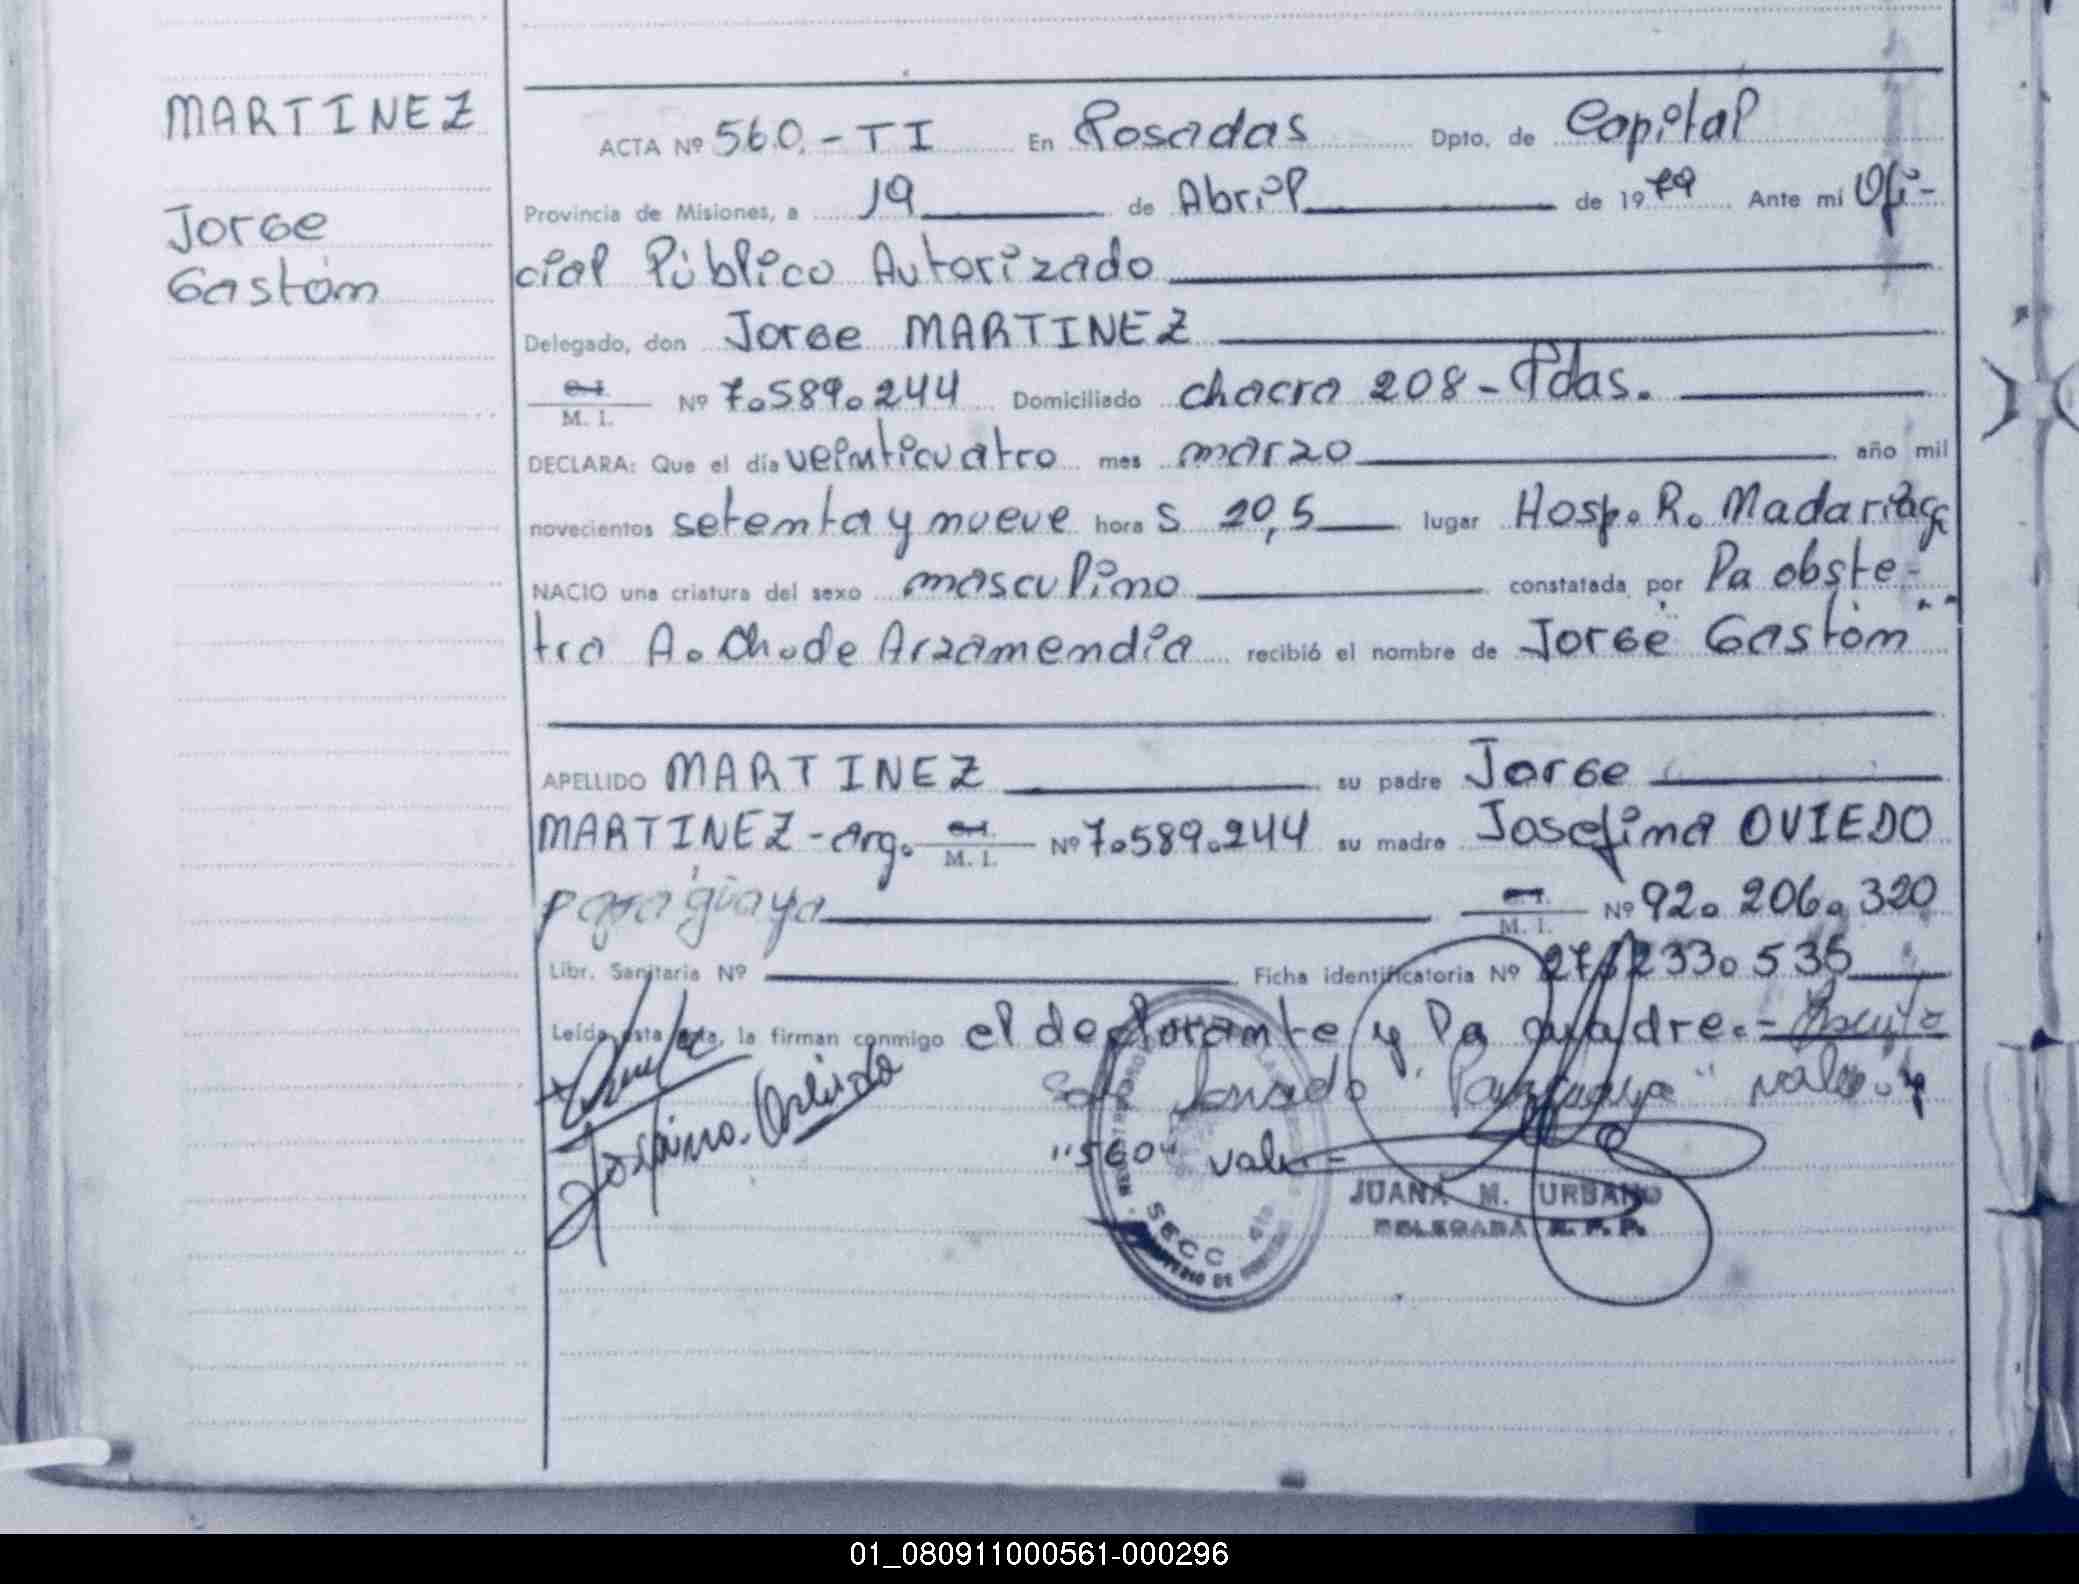 MARTINEZ
Jorge
Gastón
ACTA Nº 560.-TI En Posadas Dpto. de Capital
Provincia de Misiones, a 19 de Abril de 1979 Ante mi Ofi-
cial Público Autorizado
Delegado, don Jorge MARTINEZ
M. I. Nº 7.589.244 Domiciliado chacra 208 - Pdas.
DECLARA: Que el día veinticuatro mes marzo año mil
novecientos setenta y nueve hora s 20,5 lugar Hosp. R. Madariaga
NACIO una criatura del sexo masculino constatada por la obste-
tra A. Ch. de Arzamendia recibió el nombre de Jorge Gastón
APELLIDO MARTINEZ su padre Jorge
MARTINEZ - arg. M. I. Nº 7.589.244 su madre Josefina OVIEDO
paraguaya M. I. Nº 92.206.320
Libr. Sanitaria Nº Ficha identificatoria Nº 27.233.535
Leída esta acta, la firman conmigo el declarante y la madre.-
"Paraguaya" vale. y
"560" vale
Josefina Oviedo
SECC 4ta
JUANA M. URBANO
DELEGADA R. P. P.
01_080911000561-000296